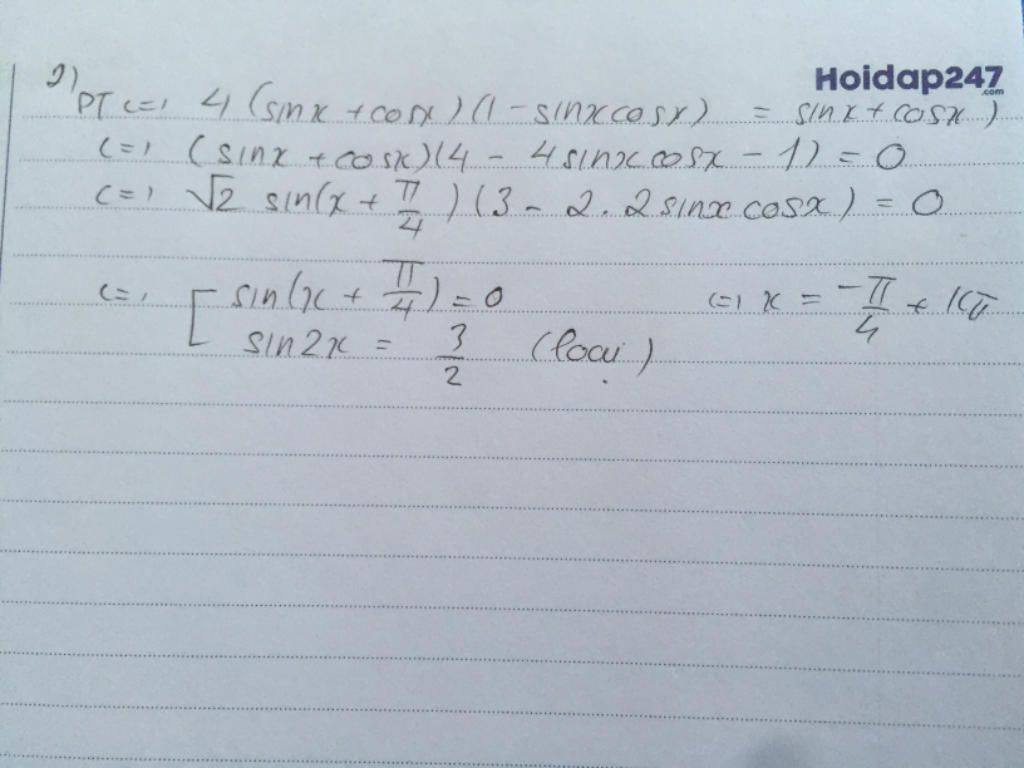 Hoidap247
.com
2)
PT <=> 4 (sinx + cosx)(1 - sinxcosx) = sinx + cosx)
<=> (sinx + cosx)(4 - 4sinxcosx - 1) = 0
<=> √2 sin(x + π/4)(3 - 2.2sinxcosx) = 0
<=> [ sin(x + π/4) = 0 <=> x = -π/4 + kπ
sin2x = 3/2 (loại)